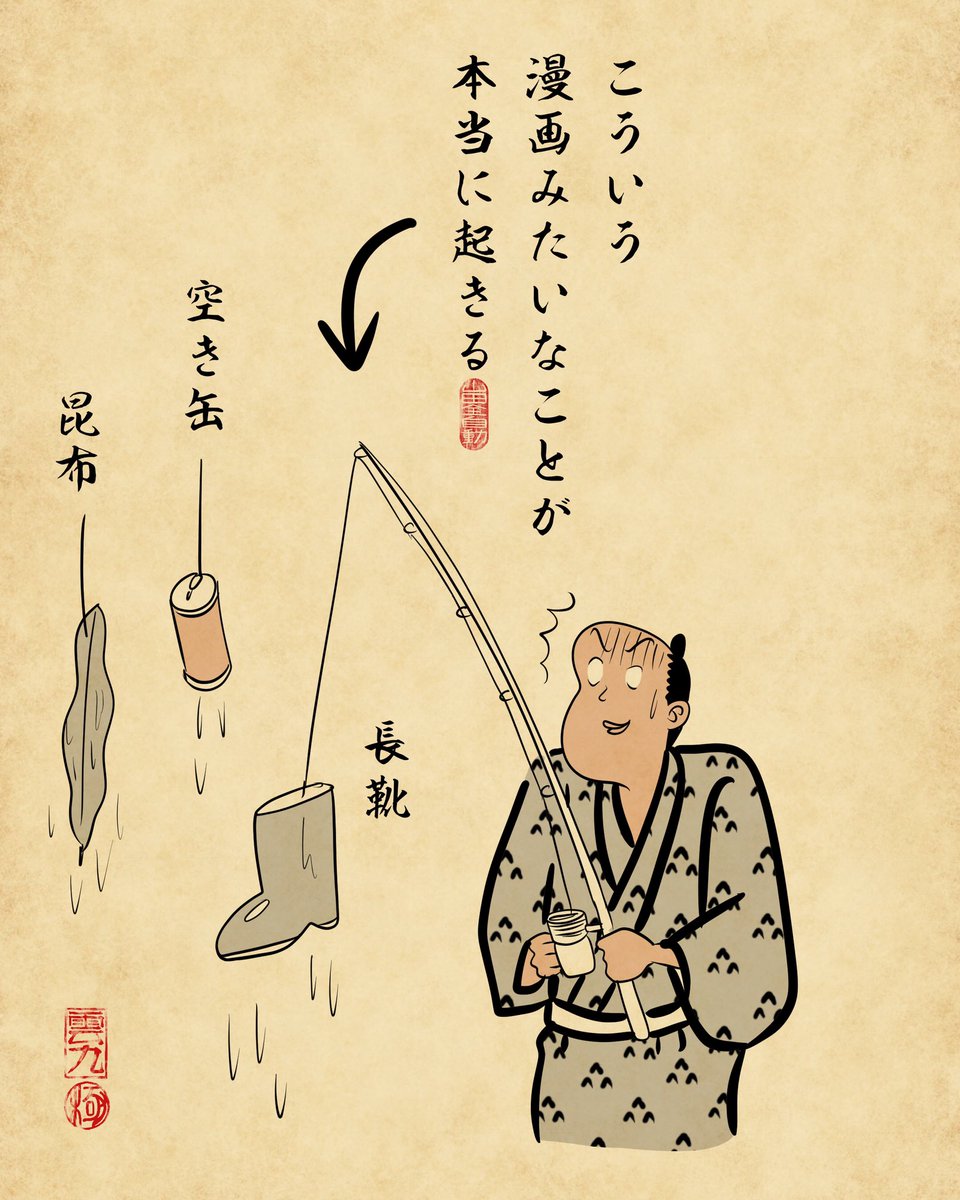 こういう
漫画みたいなことが
本当に起きる
長靴
空き缶
昆布